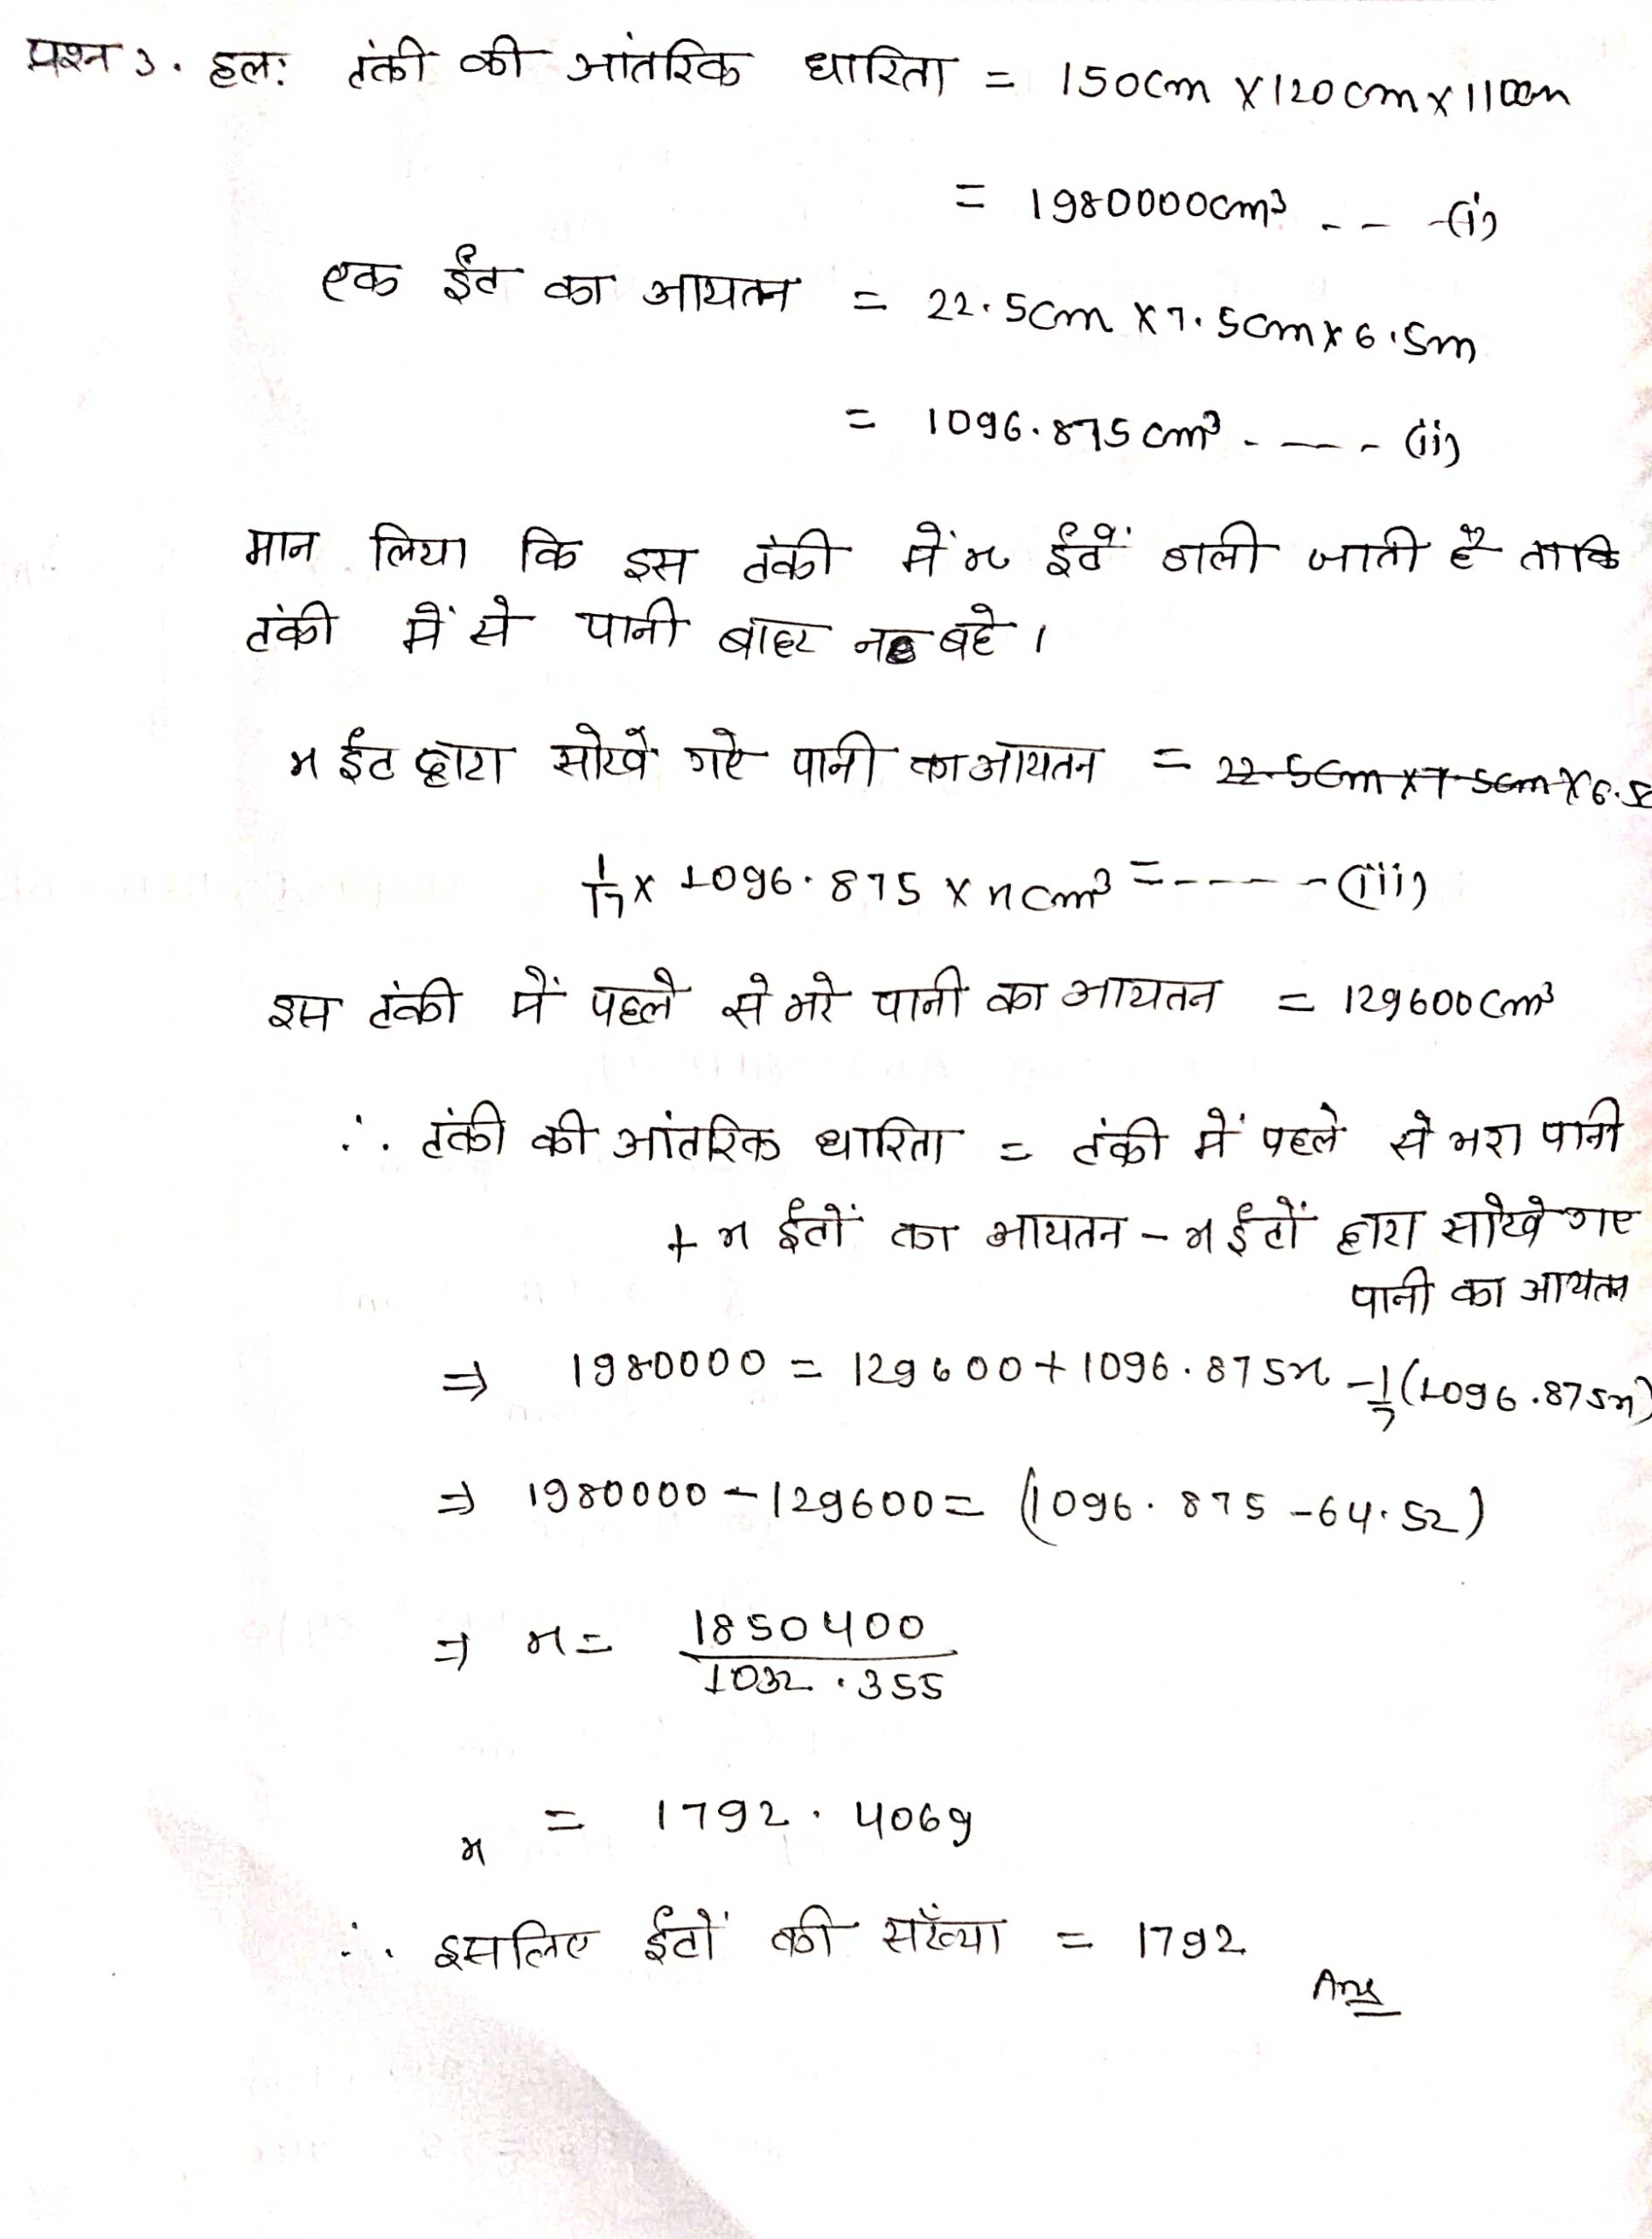 प्रश्न 3. हल: टंकी की आंतरिक धारिता = 150cm x 120cm x 110cm
= 1980000cm³ - - -(i)
एक ईंट का आयतन = 22.5cm x 7.5cm x 6.5m
= 1096.875cm³ - - - (ii)
मान लिया कि इस टंकी में n ईंटें डाली जाती है ताकि
टंकी में से पानी बाहर न बहे ।
n ईंट द्वारा सोखें गऐ पानी का आयतन = 22.5cm x 7.5cm x 6.5
1/17 x 1096.875 x n cm³ = - - - - - (iii)
इस टंकी में पहले से भरे पानी का आयतन = 129600cm³
∴ टंकी की आंतरिक धारिता = टंकी में पहले से भरा पानी
+ n ईंटों का आयतन - n ईंटों द्वारा सोखे गए
पानी का आयतन
⇒ 1980000 = 129600 + 1096.875n - 1/7 (1096.875n)
⇒ 1980000 - 129600 = (1096.875 - 64.52)
⇒ n = 1850400/1032.355
n = 1792.4069
∴ इसलिए ईंटों की सँख्या = 1792
Ans